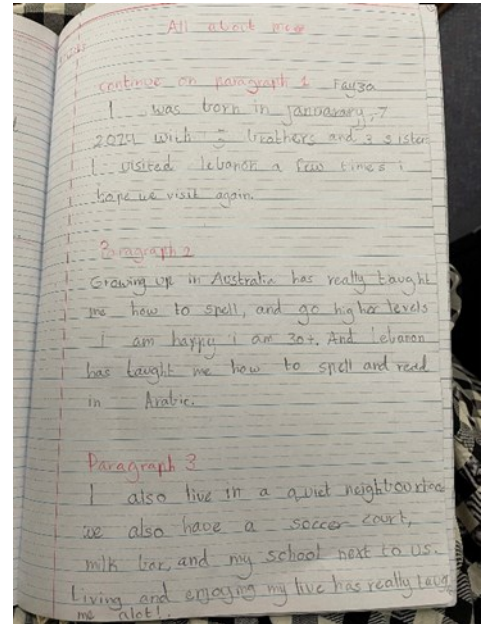 All about me
continue on paragraph 1 Fayza
I was born in januarary, 7
with 5 brothers and 3 sister
I visited lebanon a few times i
hope we visit again.
Paragraph 2
Growing up in Australia has really taught
me how to spell, and go higher levels
i am happy i am 30+. And lebanon
has taught me how to spell and read
in Arabic.
Paragraph 3
I also live in a quiet neighbourhoo
we also have a soccer court,
milk bar, and my school next to us.
Living and enjoying my live has really taug
me alot!.